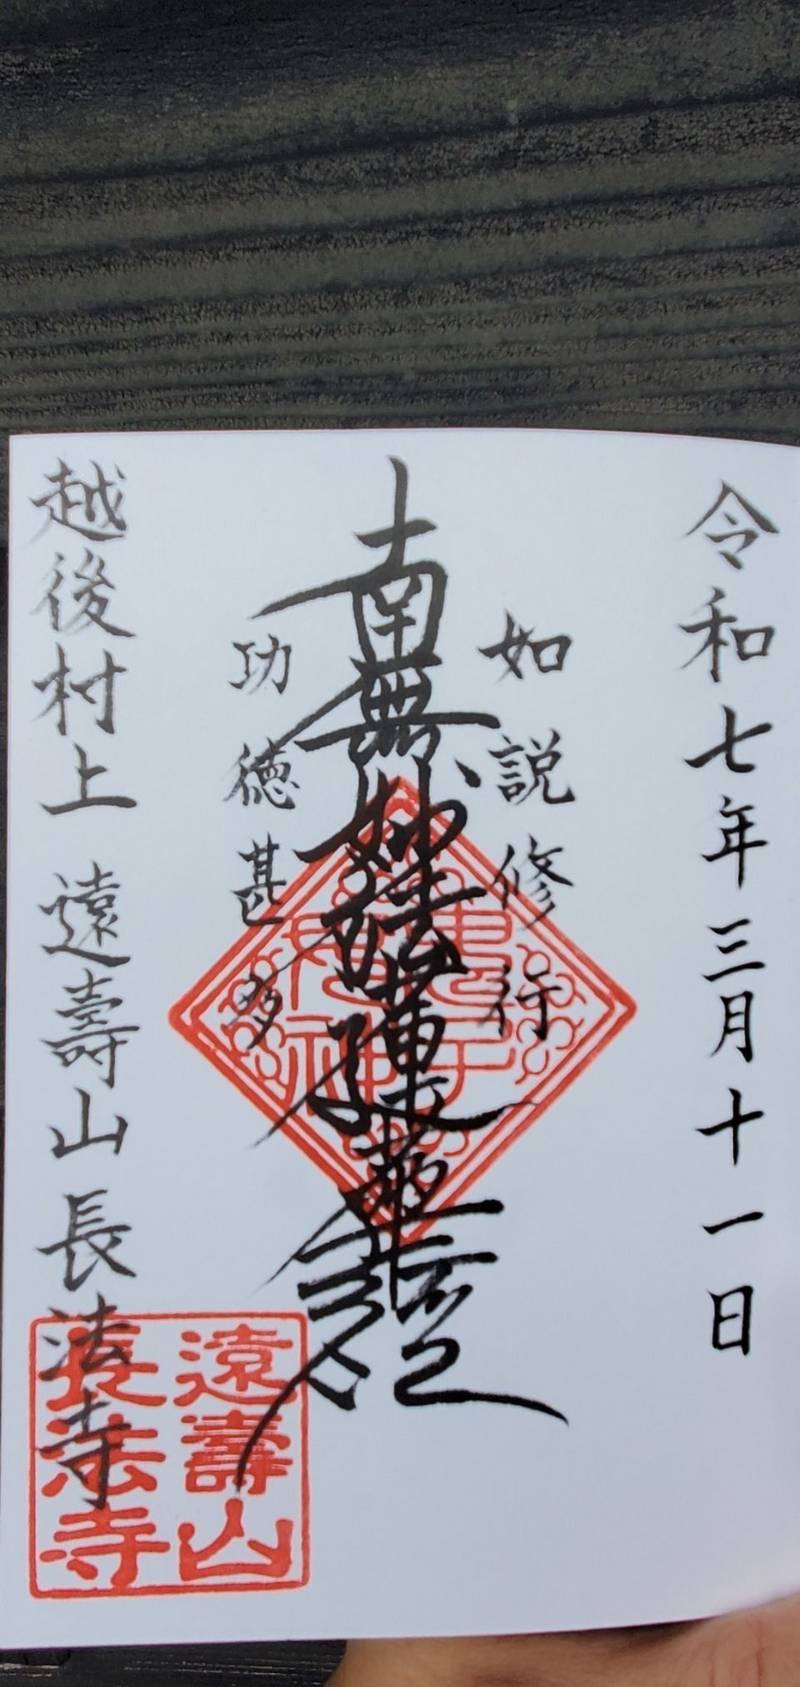 令和七年三月十一日
如説修行
南無妙法蓮華経
功徳甚多
越後村上 遠壽山 長法寺
遠壽山
長法寺